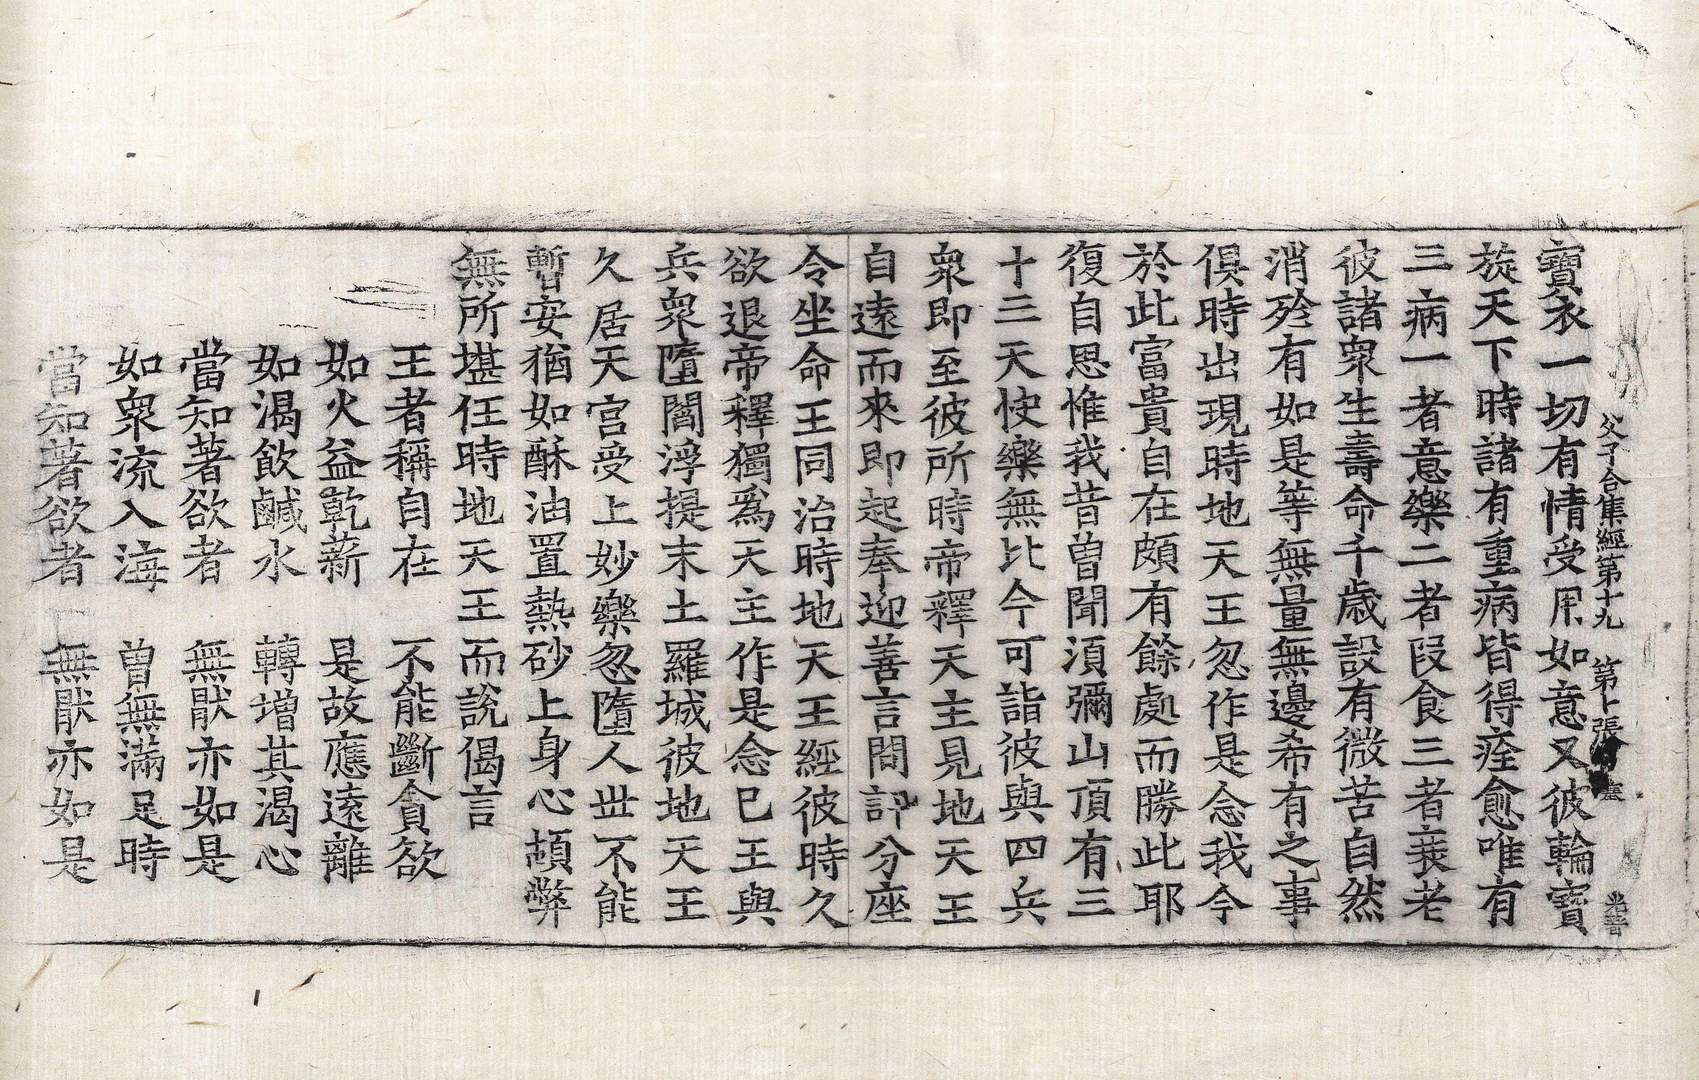 父子合集經第十九　第十張　塞
寶衣一切有情受用如意又彼輪寶
旋天下時諸有重病皆得痊愈唯有
三病一者意樂二者段食三者衰老
彼諸衆生壽命千歲設有微苦自然
消殄有如是等無量無邊希有之事
俱時出現時地天王忽作是念我今
於此富貴自在頗有餘處而勝此耶
復自思惟我昔曾聞湏彌山頂有三
十三天快樂無比今可詣彼與四兵
衆即至彼所時帝釋天主見地天王
自遠而來即起奉迎善言問訊分座
令坐命王同治時地天王經彼時久
欲退帝釋獨爲天主作是念已王與
兵衆墮閻浮提末土羅城彼地天王
久居天宫受上妙樂忽墮人世不能
暫安猶如酥油置熱砂上身心頓弊
無所堪任時地天王而說偈言
王者稱自在　不能斷貪欲
如火益乾薪　是故應遠離
如渴飲鹹水　轉增其渴心
當知著欲者　無猒亦如是
如衆流入海　曾無滿足時
當知著欲者　無猒亦如是